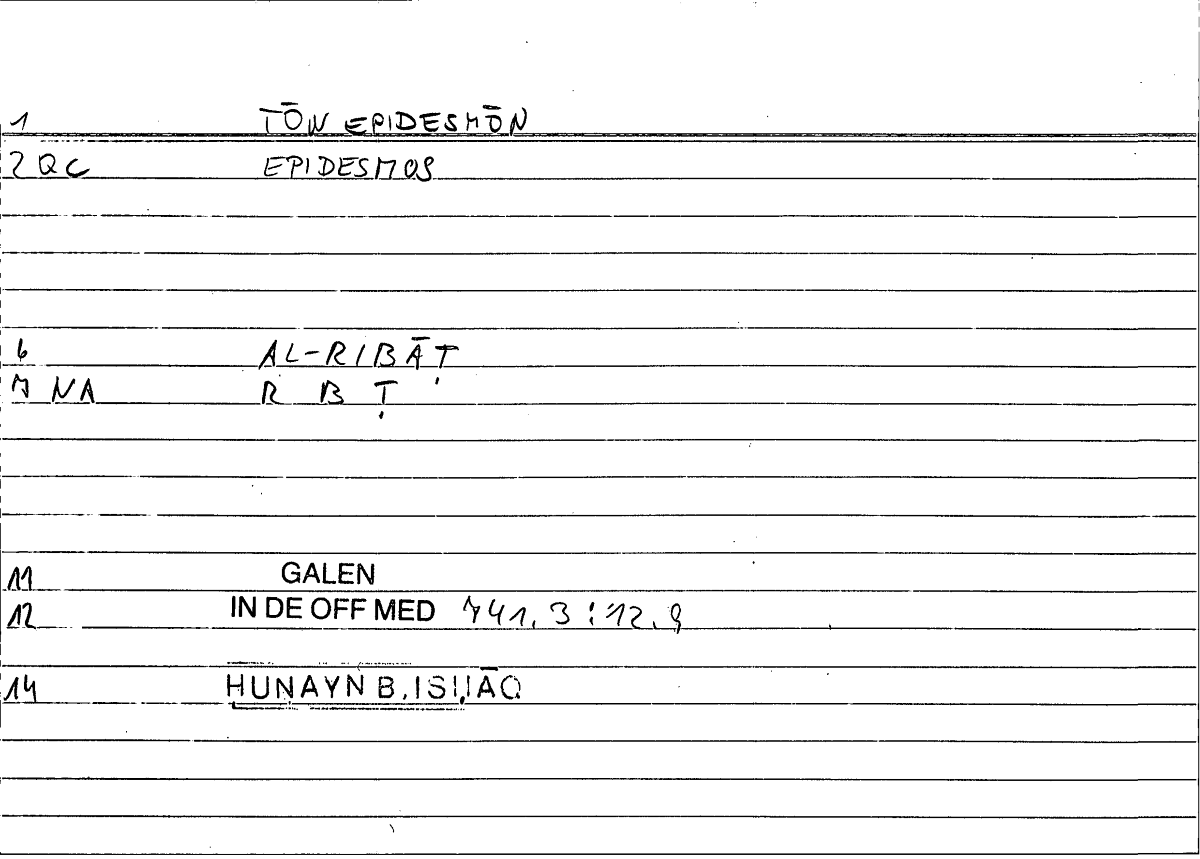 1 TŌN EPIDESMŌN
2 QC EPIDESMOS
6 AL-RIBĀṬ
7 NA R B Ṭ
11 GALEN
12 IN DE OFF MED 741.3 : 12.9
14 HUNAYN B. ISḤĀQ